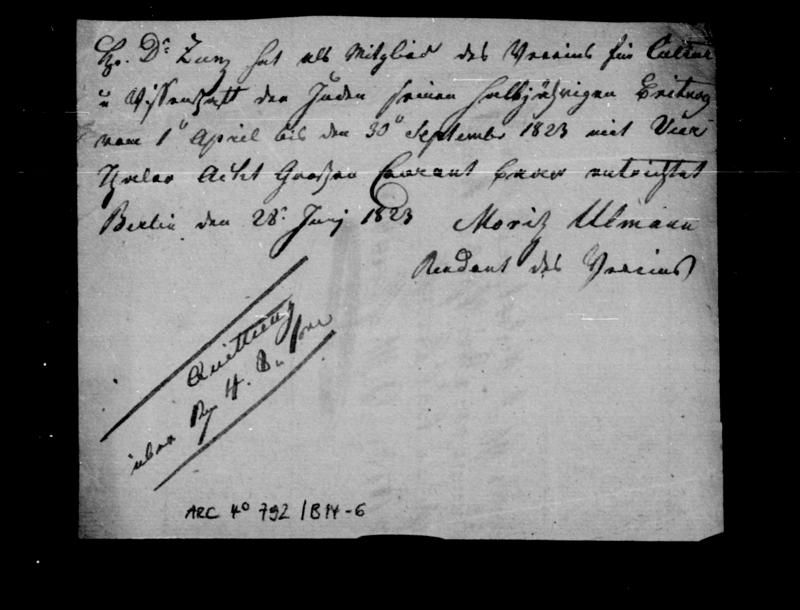 Hr. Dr Zunz hat als Mitglied des Vereins für Cultur
u Wissenschaft der Juden seinen halbjährigen Beitrag
vom 1n April bis den 30n September 1823 mit Vier
Thaler Acht Groschen Courant entrichtet
Berlin den 28n Juny 1823 Moritz Ulmann
Rendant des Vereins
Quittung
über 4. 8
ARC 4o 792 / B14-6